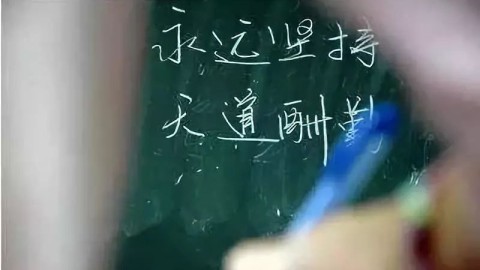 永远坚持
天道酬勤